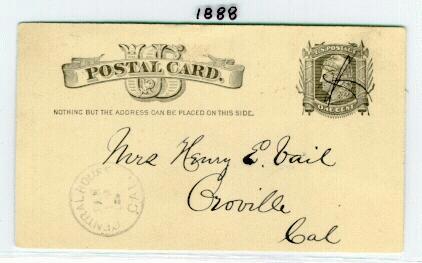 1888
US
POSTAL CARD.
U.S. POSTAGE
ONE CENT
NOTHING BUT THE ADDRESS CAN BE PLACED ON THIS SIDE.
Mrs Henry E. Vail
Oroville
Cal
CENTRAL HOUSE CAL.